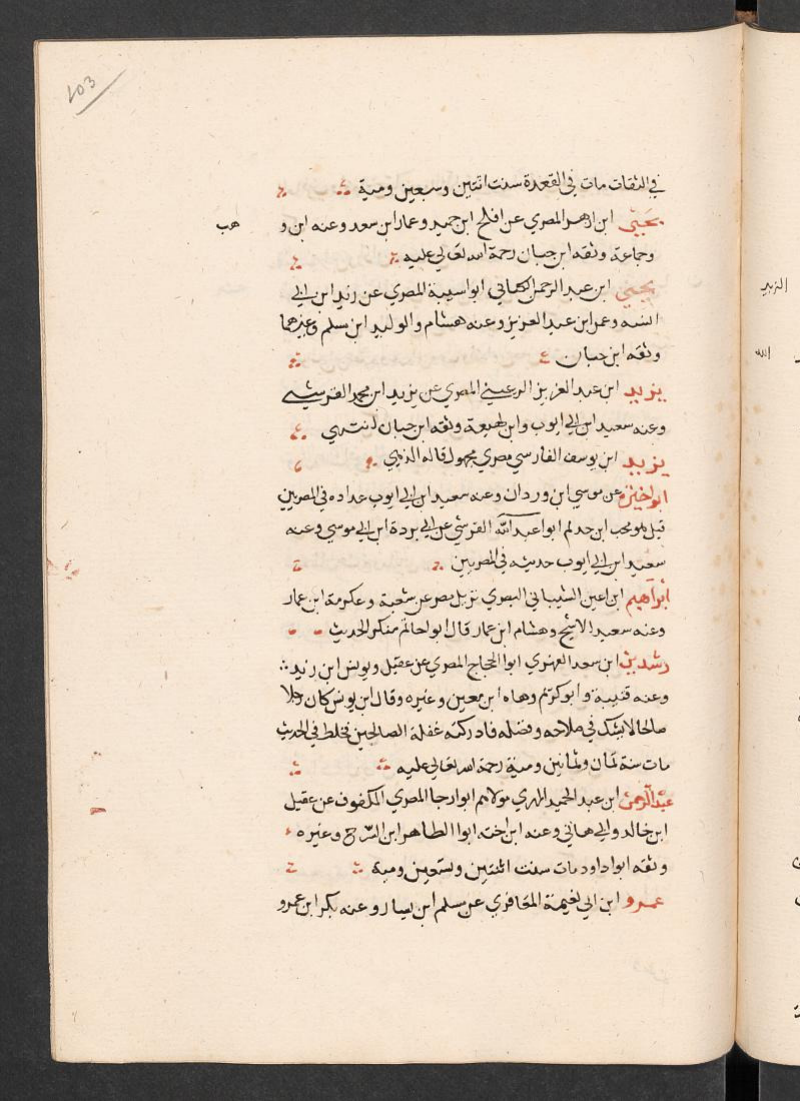 103
في الثقات مات في القعدة سنت اثنتين وسبعين ومية
يحيى ابن ازهر المصري عن افلح ابن حميد وعمار ابن سعد وعنه ابن و هب
وجماعة وثقه ابن حبان رحمة الله تعالي عليه
يحيي ابن عبد الرحمن الكناني ابوا شيبة المصري عن زيد ابن ابي
انيسه وعمر ابن عبد العزيز وعنه هشام والوليد ابن مسلم وغيرهما
وثقه ابن حبان
يزيد ابن عبد العزيز الرعيني المصري عن يزيد ابن محمد القرشي
وعنه سعيد ابن ابي ايوب وابن لهيعة وثقه ابن حبان انتهي
يزيد ابن يوسف الفارسي مصري مجهول قاله الذهبي
ابوا خيره عن موسي ابن وردان وعنه سعيد ابن ابي ايوب عداده في المصريين
قيل هو محب ابن حدلم ابوا عبد الله القرشي عن ابي بردة ابن ابي موسي وعنه
سعيد ابن ابي ايوب حديثه في المصريين
ابراهيم ابن اعين الشيباني البصري نزيل مصر عن شعبة وعكرمة ابن عمار
وعنه سعيد الاشج وهشام ابن عمار قال ابوا حاتم منكر الحديث
رشدين ابن سعد المهري ابوا الحجاج المصري عن عقيل ويونس ابن زيد
وعنه قتيبة وابو كريم وهاه ابن معين وغيره وقال ابن يونس كان رجلا
صالحا لا يشك في صلاحه وفضله فادركته غفلة الصالحين فخلط في الحديث
مات سنة ثمان وثمانين ومية رحمة الله تعالي عليه
عبد الرحمن ابن عبد الحميد المهري مولاهم ابوا رجا المصري المكفوف عن عقيل
ابن خالد وابي هاني وعنه ابن اخته ابوا الطاهر ابن السرح وغيره
وثقه ابوا داود مات سنت اثنتين وتسعين ومية
عمرو ابن ابي نعيمة المعافري عن مسلم ابن يسار وعنه بكر ابن عمرو
الزبير
الله